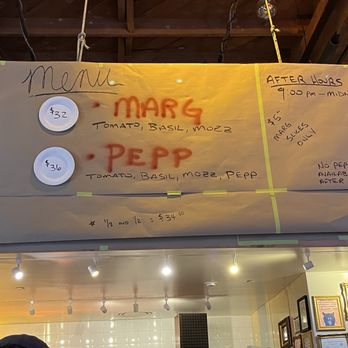 Menu
$32
• MARG
TOMATO, BASIL, MOZZ
$36
• PEPP
TOMATO, BASIL, MOZZ, PEPP
* 1/2 AND 1/2 = $34
AFTER HOURS
9:00 PM - MIDN
$5
MARG
SLICES
ONLY
NO PEP
AVAILAB
AFTER